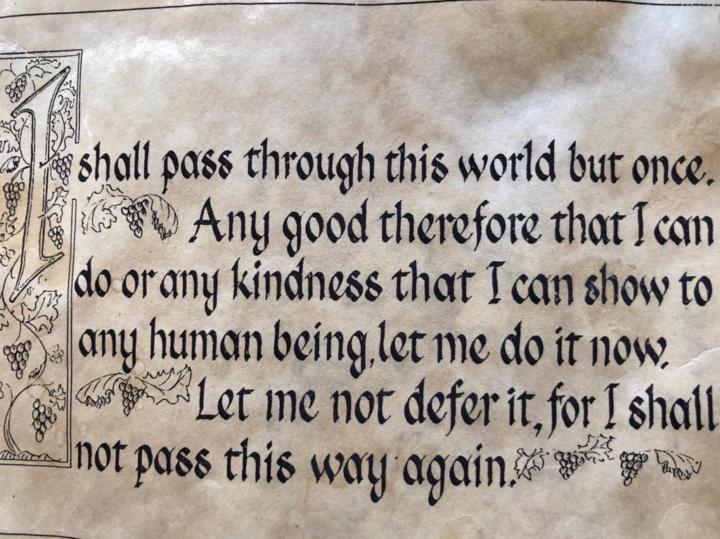 I shall pass through this world but once.
Any good therefore that I can
do or any kindness that I can show to
any human being, let me do it now.
Let me not defer it, for I shall
not pass this way again.